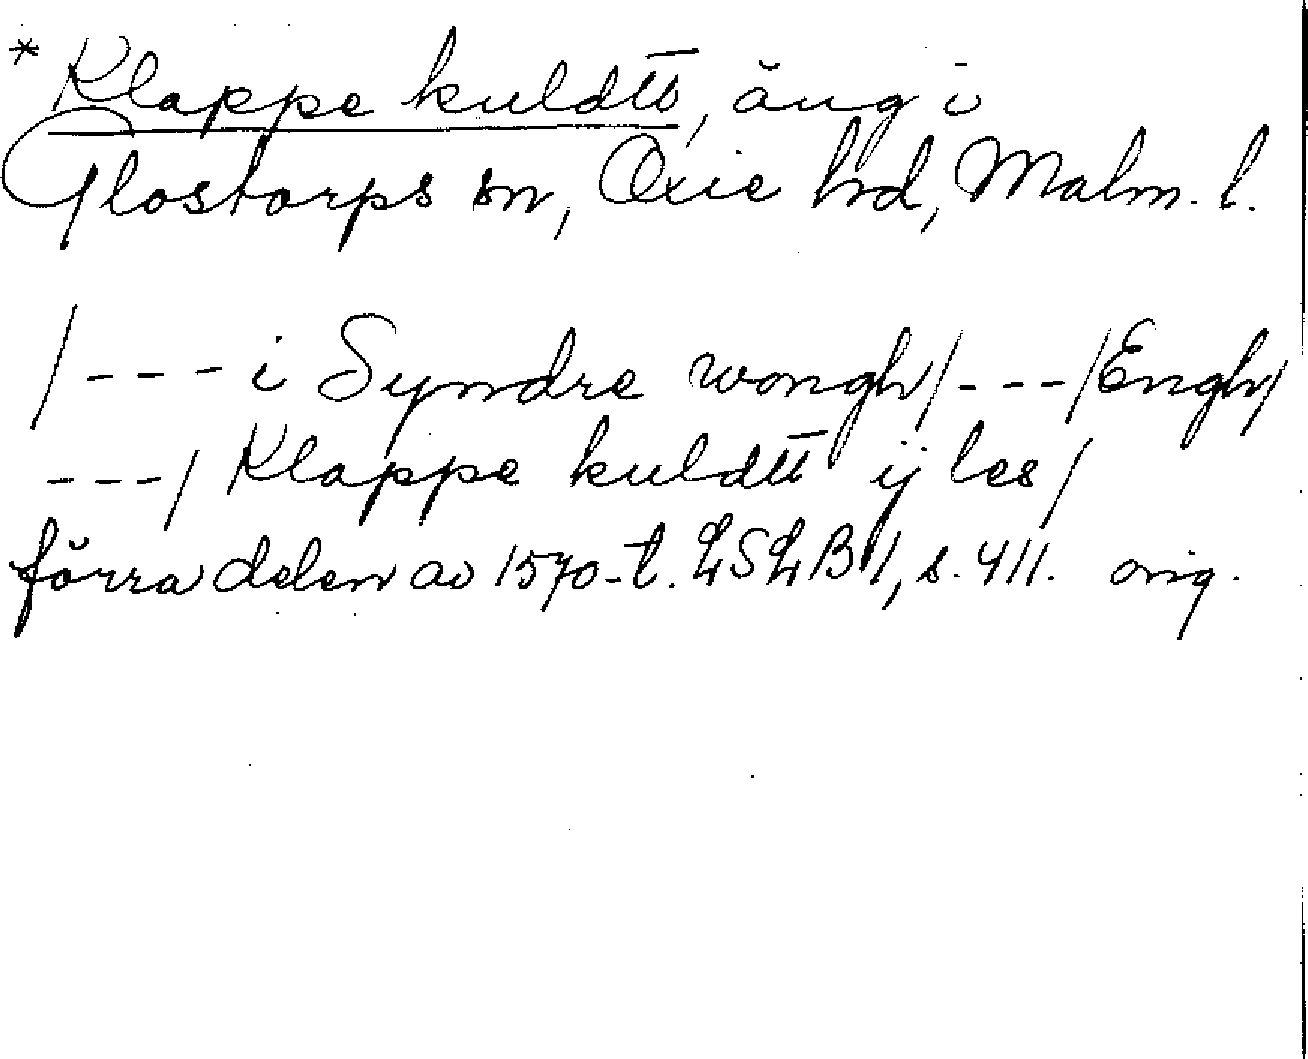 * Klappe kuldtt, äng i
Glostorps sn, Oxie hrd, Malm. l.
/--- i Syndre wongh/---/Engh/
---/ Klappe kuldtt ij les/
förra delen av 1570-t. LSLB 1, s. 411. orig.